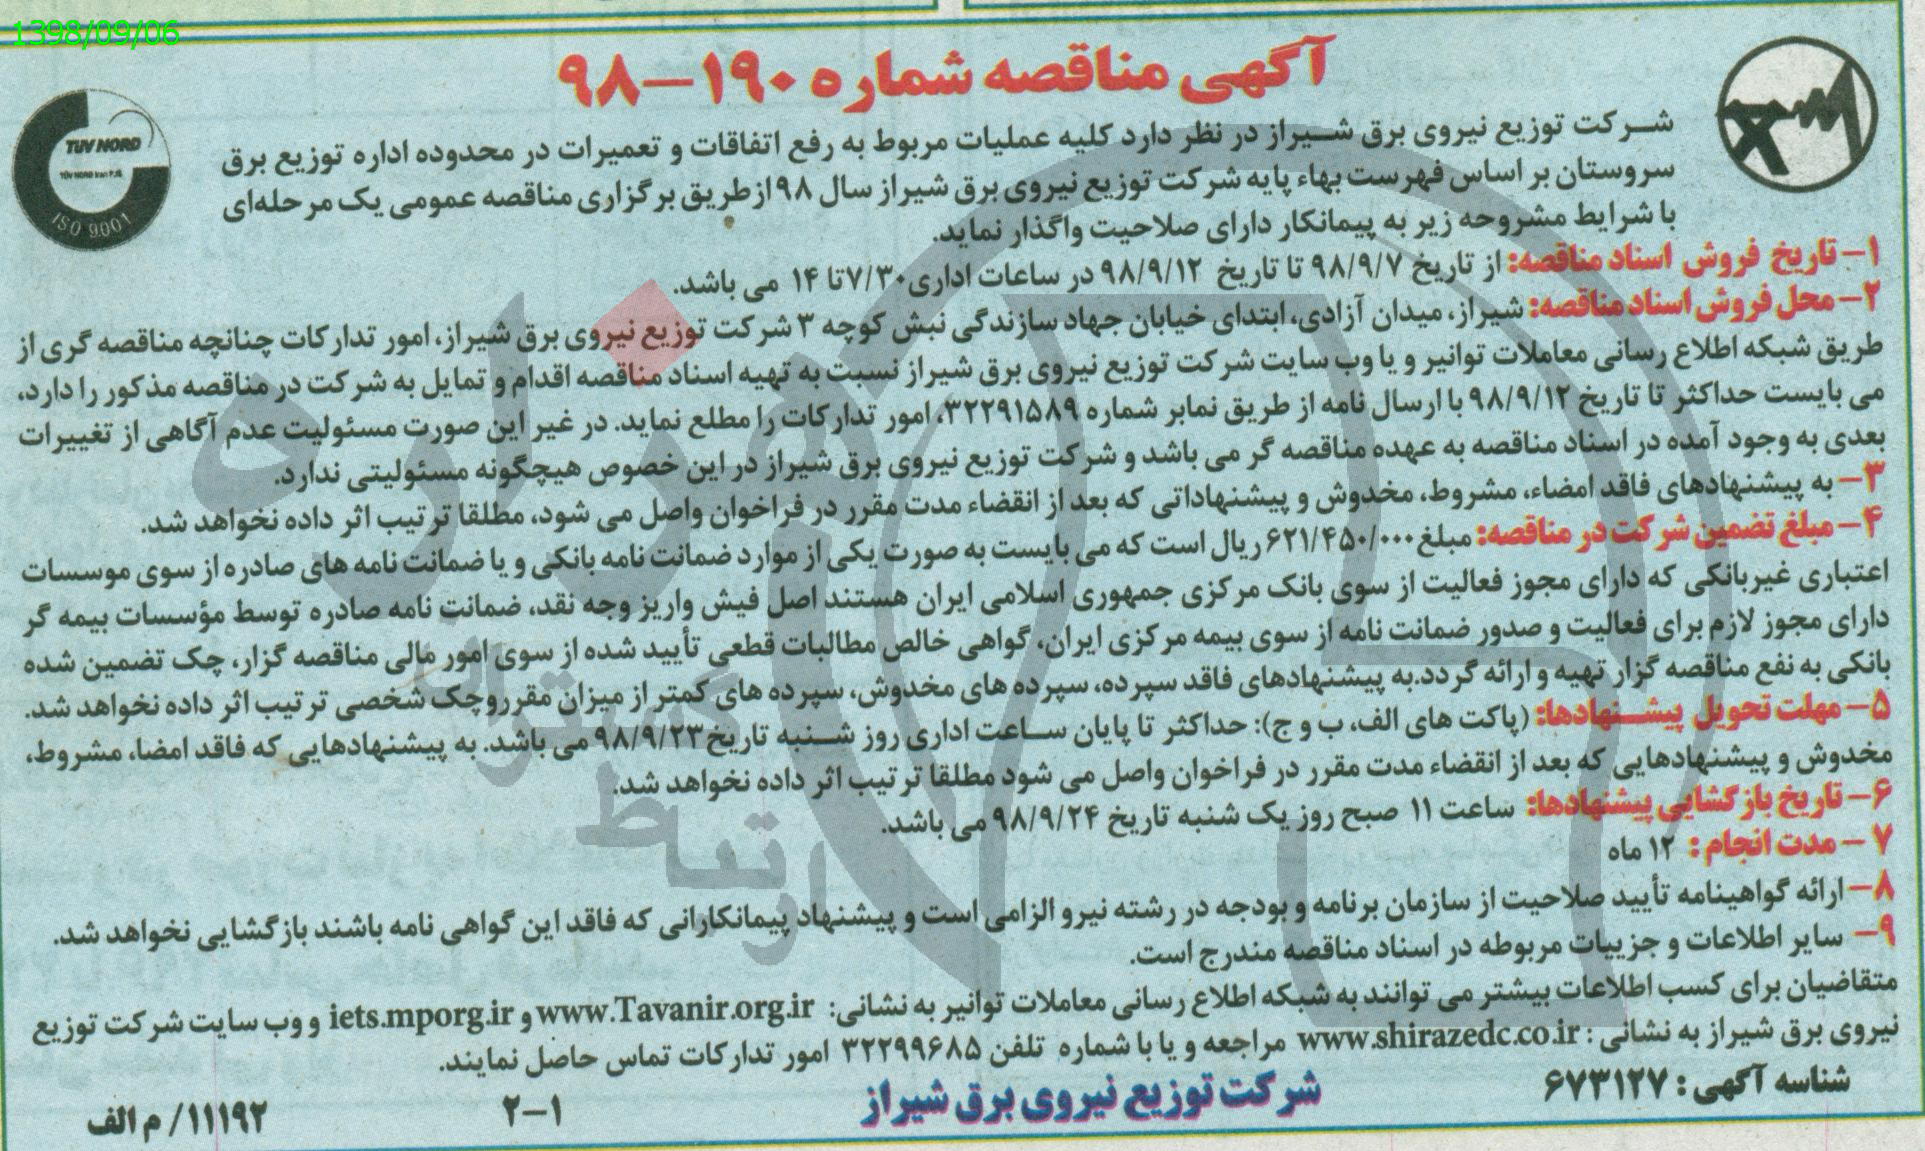 1398/09/06
آگهی مناقصه شماره ۱۹۰-۹۸
TUV NORD
TÜV NORD Iran P.S.
ISO 9001
شرکت توزیع نیروی برق شیراز در نظر دارد کلیه عملیات مربوط به رفع اتفاقات و تعمیرات در محدوده اداره توزیع برق
سروستان بر اساس فهرست بهاء پایه شرکت توزیع نیروی برق شیراز سال ۹۸ از طریق برگزاری مناقصه عمومی یک مرحله‌ای
با شرایط مشروحه زیر به پیمانکار دارای صلاحیت واگذار نماید.
۱- تاریخ فروش اسناد مناقصه: از تاریخ ۹۸/۹/۷ تا تاریخ ۹۸/۹/۱۲ در ساعات اداری ۷/۳۰ تا ۱۴ می باشد.
۲- محل فروش اسناد مناقصه: شیراز، میدان آزادی، ابتدای خیابان جهاد سازندگی نبش کوچه ۳ شرکت توزیع نیروی برق شیراز، امور تدارکات چنانچه مناقصه گری از
طریق شبکه اطلاع رسانی معاملات توانیر و یا وب سایت شرکت توزیع نیروی برق شیراز نسبت به تهیه اسناد مناقصه اقدام و تمایل به شرکت در مناقصه مذکور را دارد،
می بایست حداکثر تا تاریخ ۹۸/۹/۱۲ با ارسال نامه از طریق نمابر شماره ۳۲۲۹۱۵۸۹، امور تدارکات را مطلع نماید. در غیر این صورت مسئولیت عدم آگاهی از تغییرات
بعدی به وجود آمده در اسناد مناقصه به عهده مناقصه گر می باشد و شرکت توزیع نیروی برق شیراز در این خصوص هیچگونه مسئولیتی ندارد.
۳- به پیشنهادهای فاقد امضاء، مشروط، مخدوش و پیشنهاداتی که بعد از انقضاء مدت مقرر در فراخوان واصل می شود، مطلقا ترتیب اثر داده نخواهد شد.
۴- مبلغ تضمین شرکت در مناقصه: مبلغ ۶۲۱/۴۵۰/۰۰۰ ریال است که می بایست به صورت یکی از موارد ضمانت نامه بانکی و یا ضمانت نامه های صادره از سوی موسسات
اعتباری غیربانکی که دارای مجوز فعالیت از سوی بانک مرکزی جمهوری اسلامی ایران هستند اصل فیش واریز وجه نقد، ضمانت نامه صادره توسط مؤسسات بیمه گر
دارای مجوز لازم برای فعالیت و صدور ضمانت نامه از سوی بیمه مرکزی ایران، گواهی خالص مطالبات قطعی تأیید شده از سوی امور مالی مناقصه گزار، چک تضمین شده
بانکی به نفع مناقصه گزار تهیه و ارائه گردد.به پیشنهادهای فاقد سپرده، سپرده های مخدوش، سپرده های کمتر از میزان مقرروچک شخصی ترتیب اثر داده نخواهد شد.
۵- مهلت تحویل پیشنهادها: (پاکت های الف، ب و ج): حداکثر تا پایان ساعت اداری روز شنبه تاریخ ۹۸/۹/۲۳ می باشد. به پیشنهادهایی که فاقد امضا، مشروط،
مخدوش و پیشنهادهایی که بعد از انقضاء مدت مقرر در فراخوان واصل می شود مطلقا ترتیب اثر داده نخواهد شد.
۶- تاریخ بازگشایی پیشنهادها: ساعت ۱۱ صبح روز یک شنبه تاریخ ۹۸/۹/۲۴ می باشد.
۷- مدت انجام : ۱۲ ماه
۸- ارائه گواهینامه تأیید صلاحیت از سازمان برنامه و بودجه در رشته نیرو الزامی است و پیشنهاد پیمانکارانی که فاقد این گواهی نامه باشند بازگشایی نخواهد شد.
۹- سایر اطلاعات و جزییات مربوطه در اسناد مناقصه مندرج است.
متقاضیان برای کسب اطلاعات بیشتر می توانند به شبکه اطلاع رسانی معاملات توانیر به نشانی: www.Tavanir.org.ir و iets.mporg.ir و وب سایت شرکت توزیع
نیروی برق شیراز به نشانی : www.shirazedc.co.ir مراجعه و یا با شماره تلفن ۳۲۲۹۹۶۸۵ امور تدارکات تماس حاصل نمایند.
شناسه آگهی : ۶۷۳۱۲۷
شرکت توزیع نیروی برق شیراز
۲-۱
۱۱۱۹۲/ م الف
هزاره
گستران
ارتباط